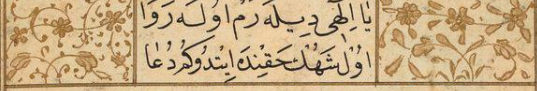 يا الهى ديله رم اوله روا
اول شهك حقينده ايتدوكم دعا